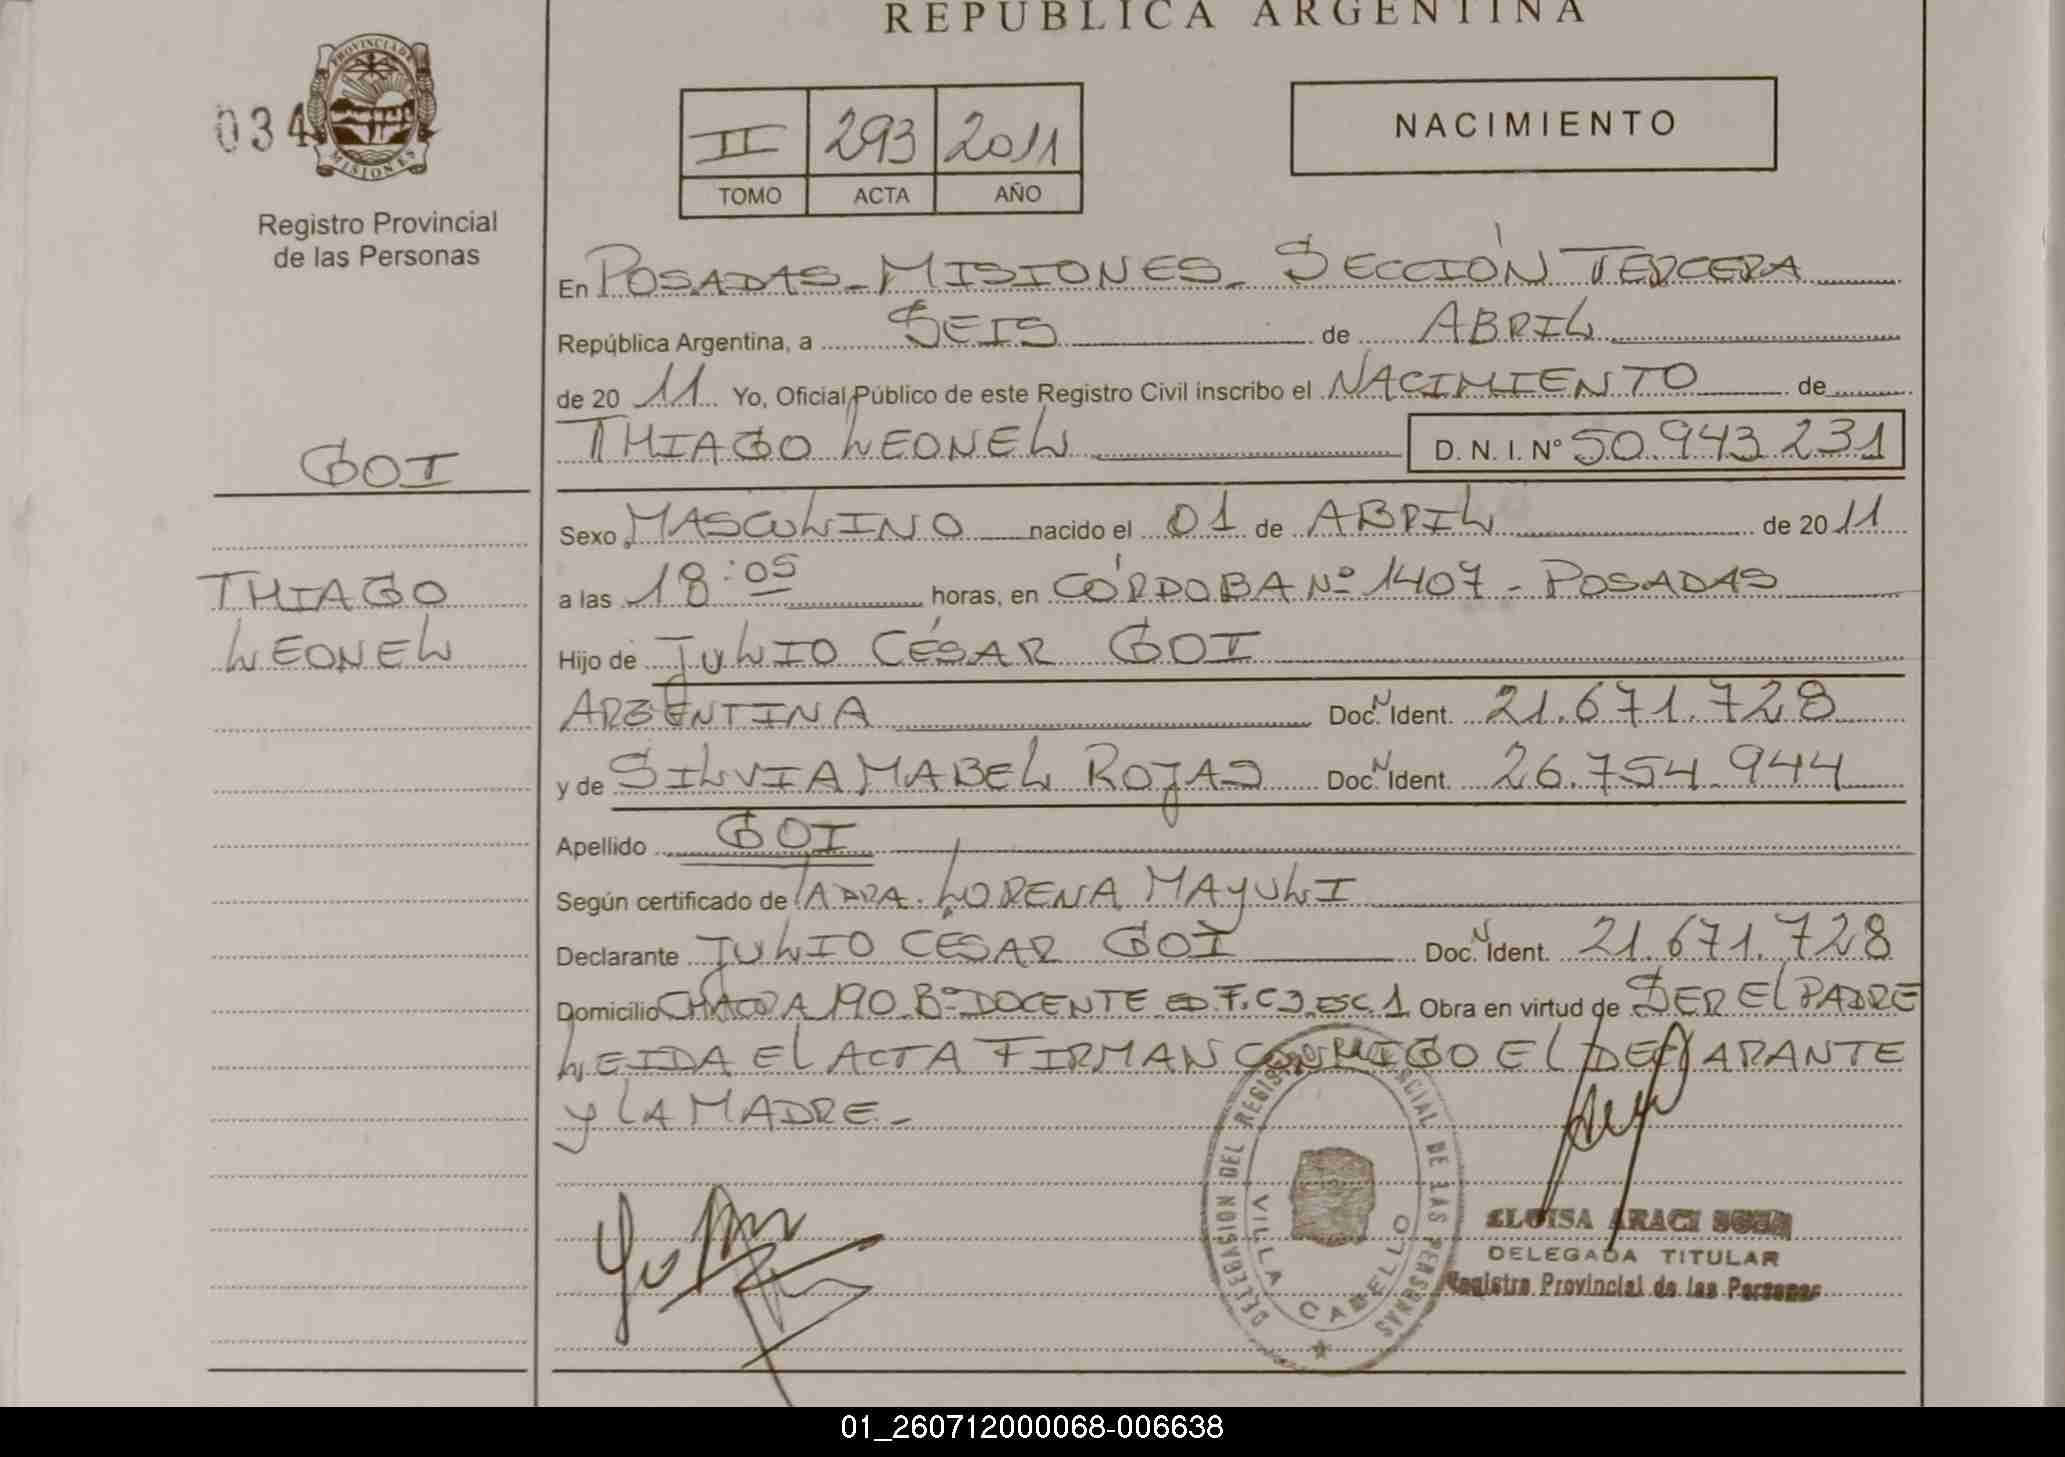 REPUBLICA ARGENTINA
PROVINCIA DE
MISIONES
034
Registro Provincial
de las Personas
II 293 2011
TOMO ACTA AÑO
NACIMIENTO
En POSADAS - MISIONES - SECCIÓN TERCERA
República Argentina, a SEIS de ABRIL
de 20 11 Yo, Oficial Público de este Registro Civil inscribo el NACIMIENTO de
THIAGO LEONEL D. N. I. Nº 50.943.231
GOI
Sexo MASCULINO nacido el 01 de ABRIL de 20 11
THIAGO
a las 18:05 horas, en CÓRDOBA Nº 1407 - POSADAS
LEONEL
Hijo de JULIO CÉSAR GOI
ARGENTINA Doc. N Ident. 21.671.728
y de SILVIA MABEL ROJAS Doc. N Ident. 26.754.944
Apellido GOI
Según certificado de LORENA MAYULI
Declarante JULIO CESAR GOI Doc. N Ident. 21.671.728
Domicilio CHACRA 190 Bº DOCENTE ESC. 1 Obra en virtud de SER EL PADRE
LEIDA EL ACTA FIRMAN CONMIGO EL DECLARANTE
Y LA MADRE -
DELEGASION DEL REGISTRO PROVINCIAL DE LAS PERSONAS
VILLA CABELLO
ELOISA ARACI
DELEGADA TITULAR
Registro Provincial de las Personas
01_260712000068-006638